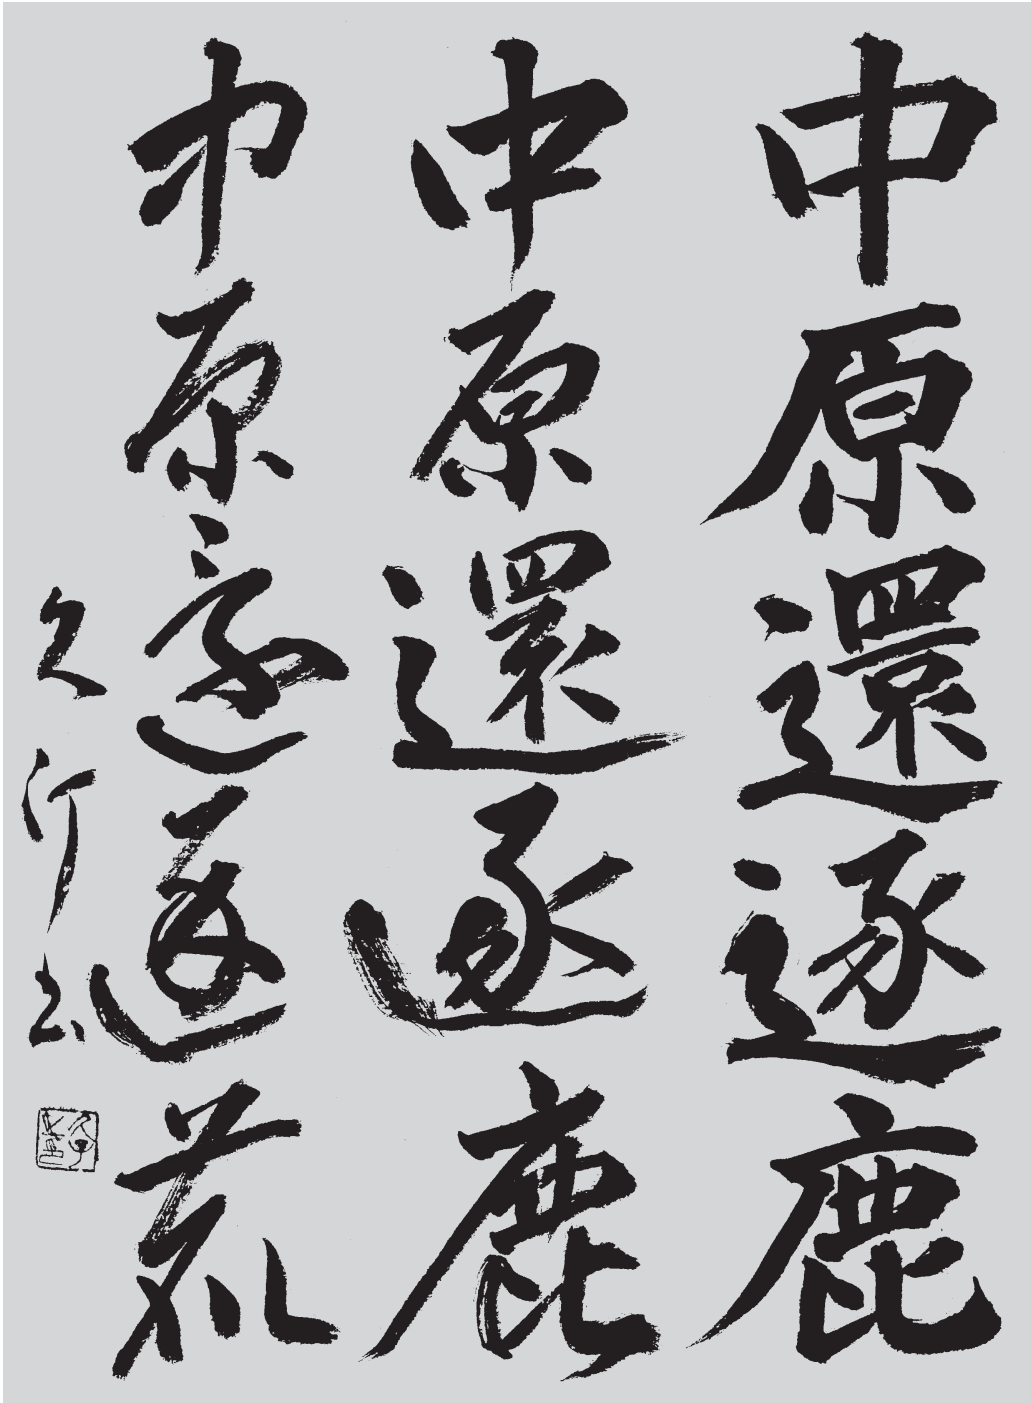 中原還逐鹿
中原還逐鹿
中原還逐鹿
久竹書